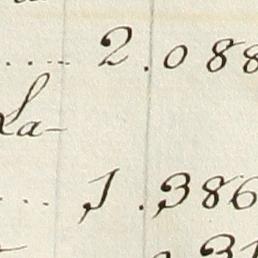 ..... 2.088
La-
... 1.386
31